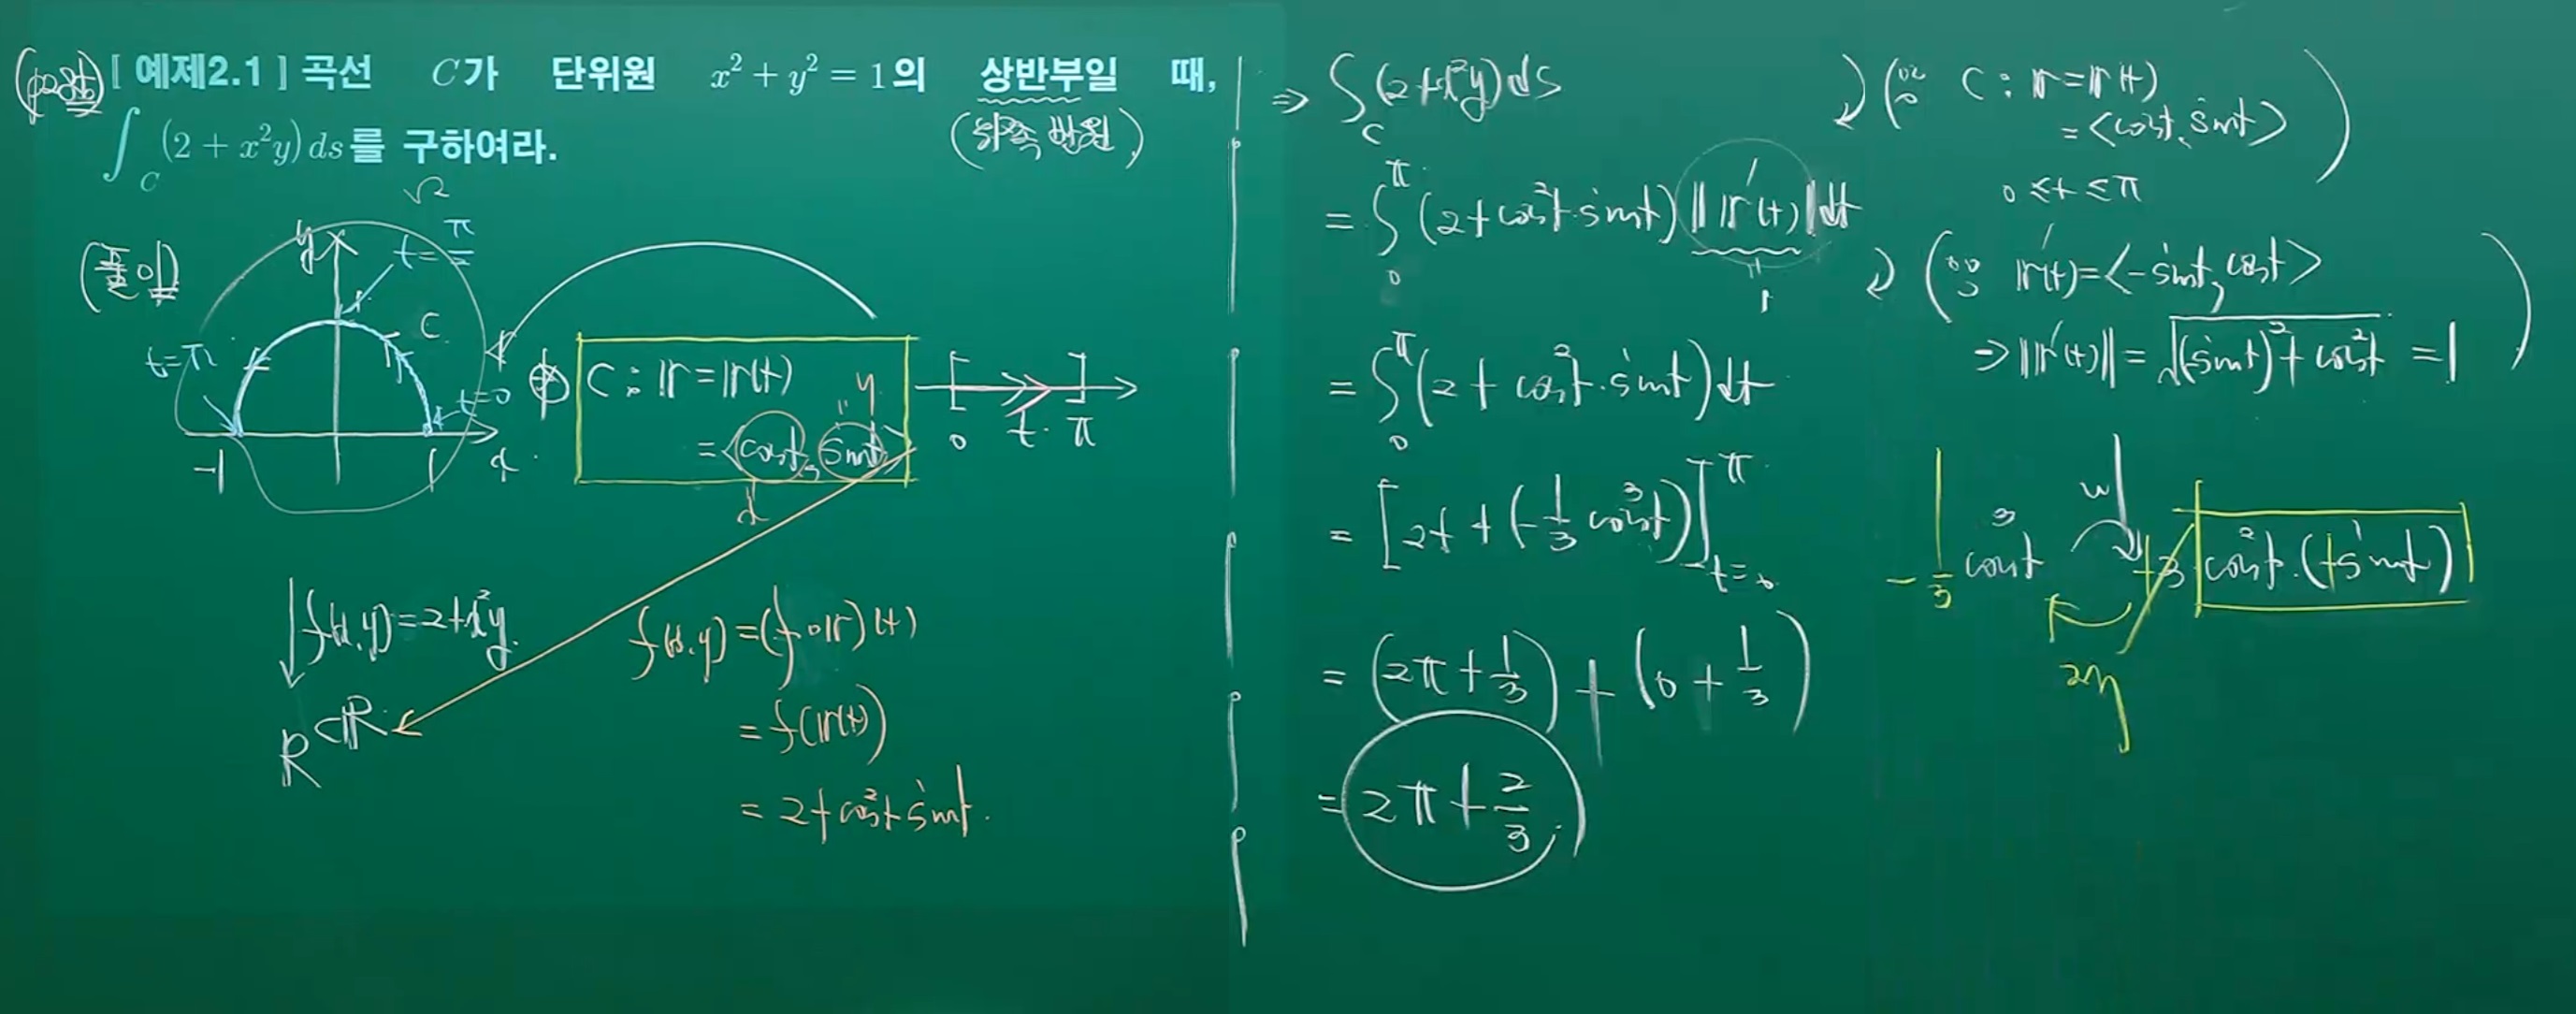 [ 예제2.1 ] 곡선 C가 단위원 x² + y² = 1의 상반부일 때,
∫_C (2 + x²y) ds를 구하여라.
(위쪽 반원)
(풀이)
y
t = π/2
C
t = π
t = 0
-1
1
x
C : r = r(t)
= <cost, sint>
x
y
0 t π
f(x,y) = 2+x²y
R ⊂ ℝ
f(x,y) = (f∘r)(t)
= f(r(t))
= 2+cos²t sint.
⇒ ∫_C (2+x²y) ds
= ∫_0^π (2+cos²t·sint) ||r'(t)|| dt
1
= ∫_0^π (2 + cos²t·sint) dt
= [2t + (-1/3 cos³t)]_{t=0}^π
= (2π + 1/3) + (0 + 1/3)
= 2π + 2/3
(∵ C : r = r(t)
= <cost, sint>
0 ≤ t ≤ π )
(∵ r'(t) = <-sint, cost>
⇒ ||r'(t)|| = √((sint)² + cos²t) = 1 )
-1/3 cos³t
+3 cos²t·(+sint)